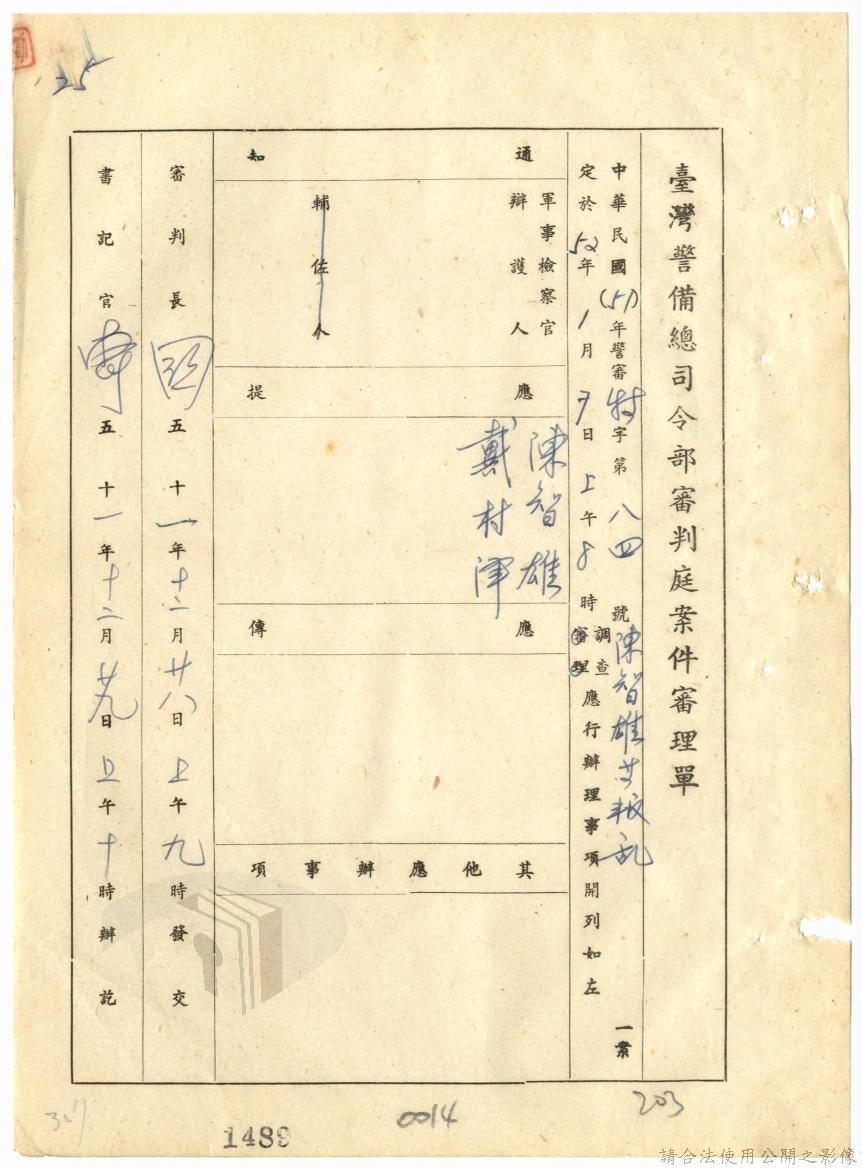 25
臺灣警備總司令部審判庭案件審理單
中華民國(51)年警審特字第八四號陳智雄等叛亂一案
定於52年1月9日上午8時調查審理應行辦理事項開列如左
通知
軍事檢察官
辯護人
輔佐人
應提
陳智雄
戴村澤
應傳
其他應辦事項
審判長 五十一年十二月廿八日上午九時發交
書記官 五十一年十二月廿九日上午十時辦訖
307
1489
0014
203
請合法使用公開之影像